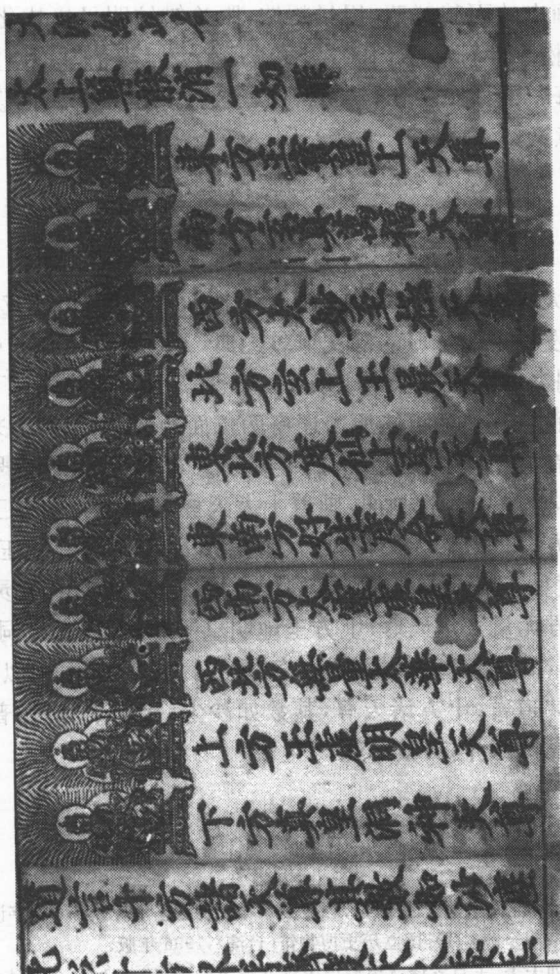 東方玉寶皇上天尊
南方玄真萬福天尊
西方太妙至極天尊
北方玄上玉晨天
東北方度仙上聖天尊
東南方好生度命天尊
西南方太靈虛皇天尊
西北方無量太華天尊
上方玉虛明皇天尊
下方真皇洞神天尊
道言十方諸天尊其數如沙塵